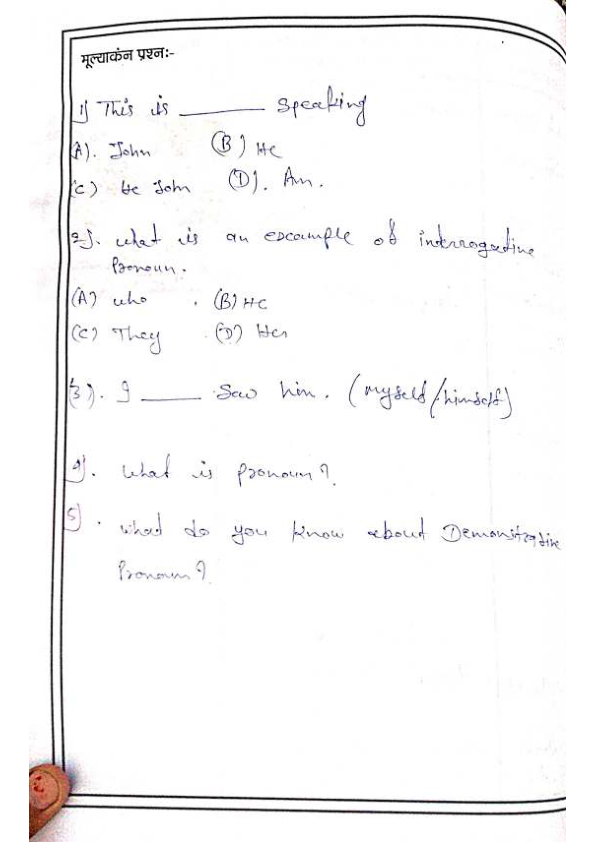 मूल्याकंन प्रश्न:-
1) This is ______ Speaking
(A). John (B) He
(C) He John (D). Am.
2). What is an example of interrogative
Pronoun.
(A) who . (B) He
(C) They . (D) Her
(3). I ______ Saw him. (myself/himself)
4). What is pronoun?
5) . What do you know about Demonstrative
Pronoun?